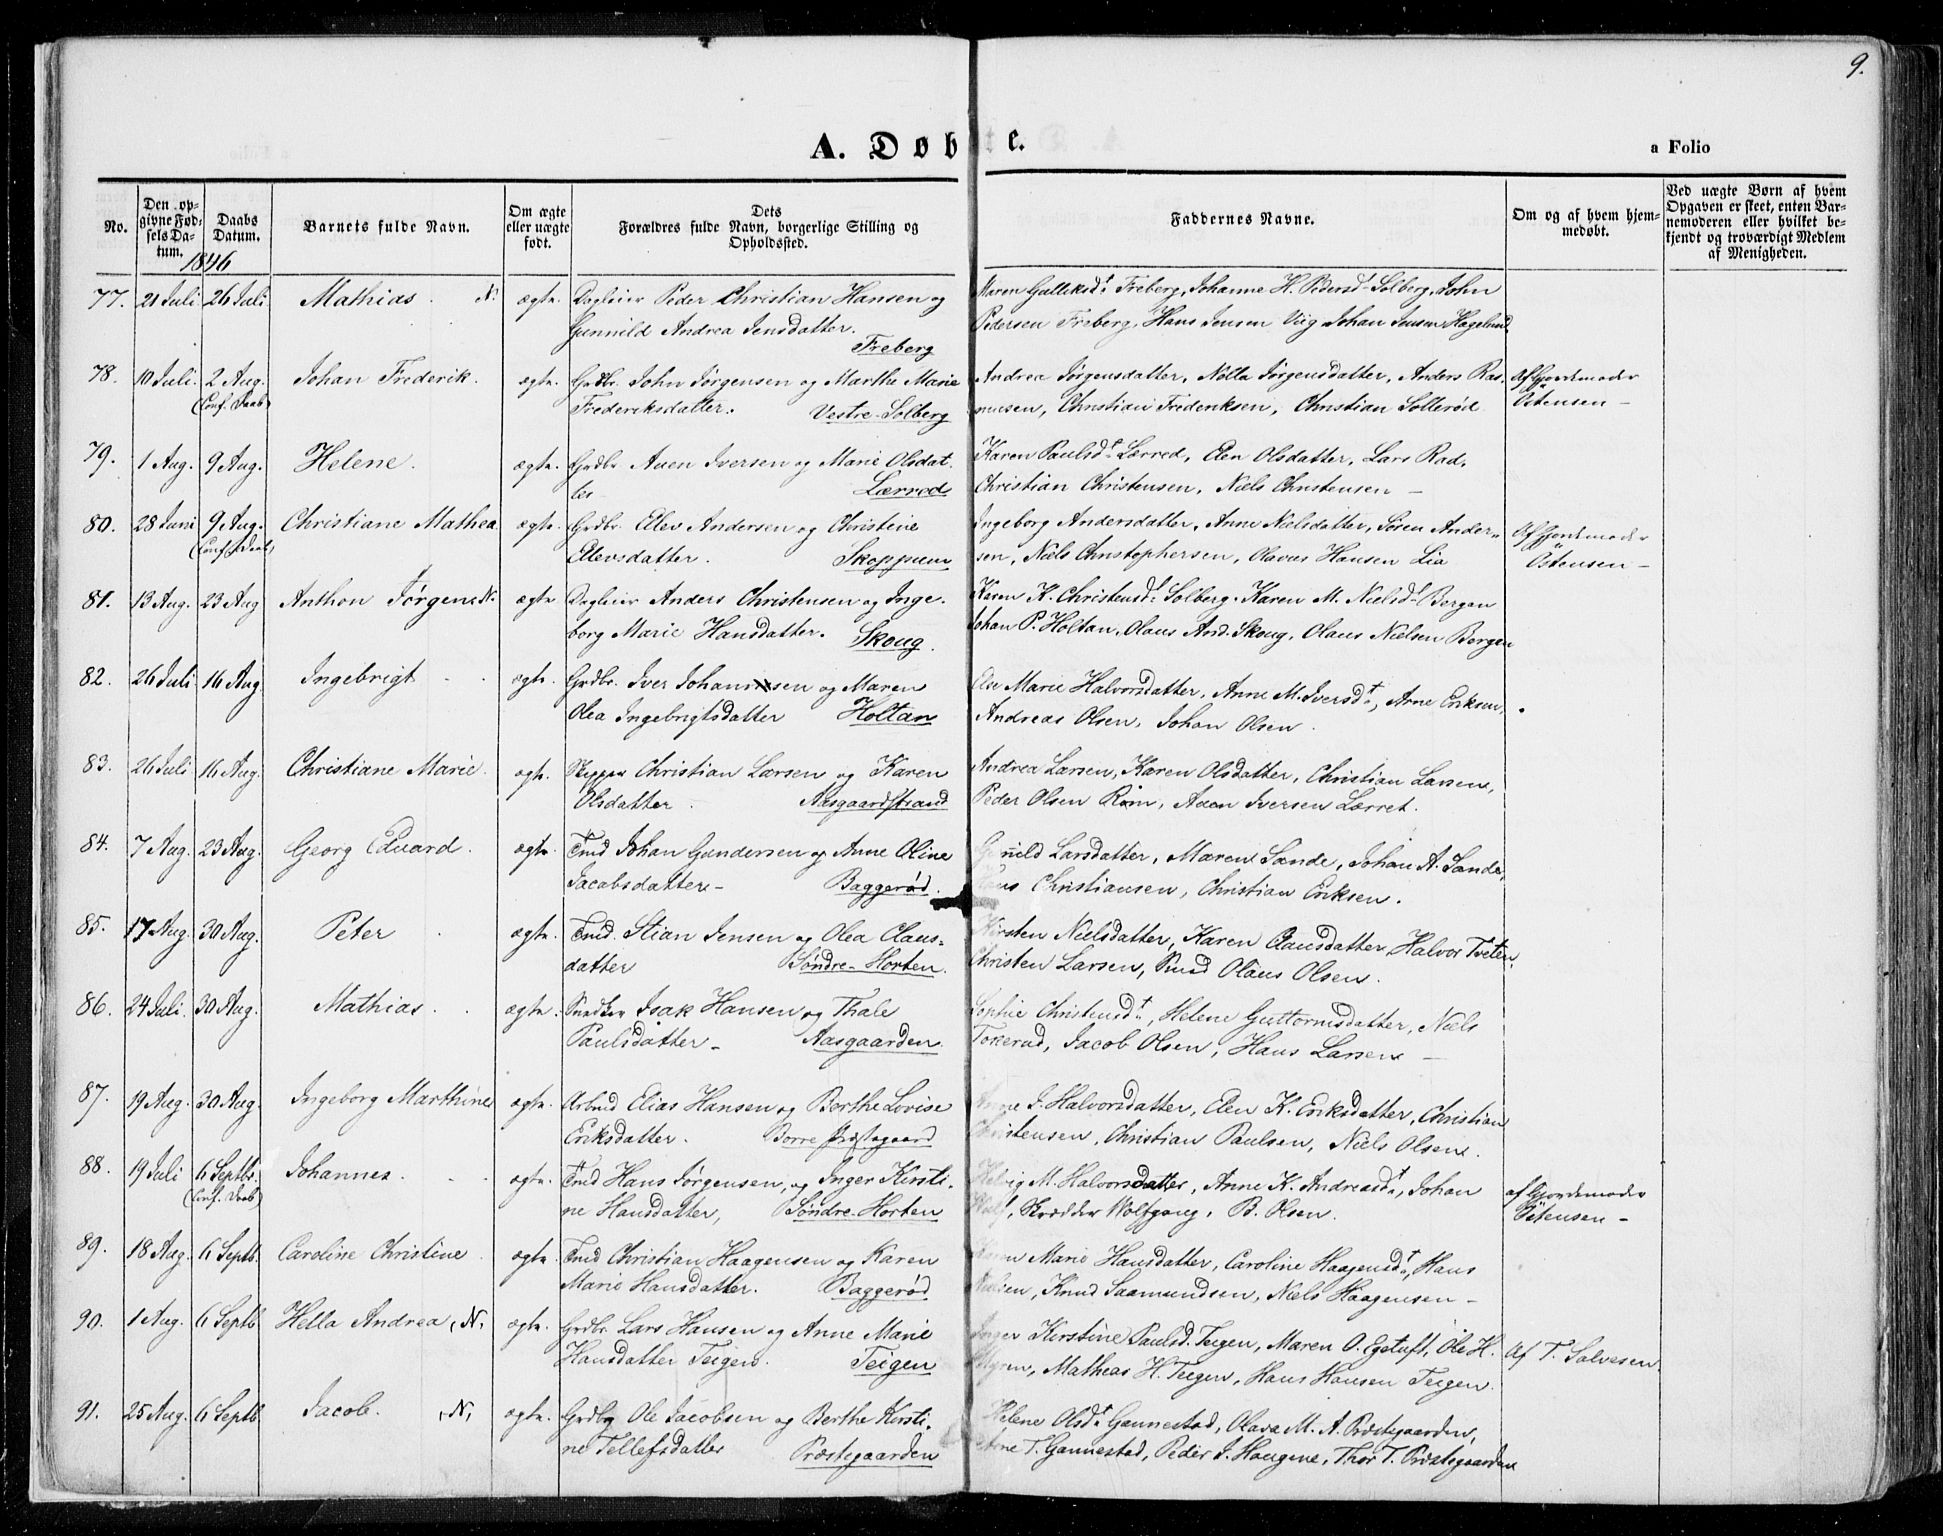 9.
A. Døbte.
a Folio
No.
Den op-
givne Fød-
sels Da-
tum.
Daabs
Datum.
1846
Barnets fulde Navn.
Om ægte
eller uægte
født.
Dets
Forældres fulde Navn, borgerlige Stilling og
Opholdssted.
Faddernes Navne.
Om og af hvem hjem-
medøbt.
Ved uægte Børn af hvem
Opgaven er skeet, enten Bar-
nemoderen eller hvilket be-
kjendt og troværdigt Medlem
af Menigheden.
77. 21 Juli. 26 Juli. Mathias. N. ægte. Dagleier Peder Christian Hansen og Maren Gulliksdt. Freberg, Johanne H. Pedersdt. Solberg, John
Gunnild Andrea Jensdatter. Pedersen Freberg, Hans Jensen Viig Johan Jensen Hagelund
Freberg
78. 10 Juli. 2 Aug. Johan Frederik. ægte. Grdbr. John Jørgensen og Marthe Marie Andrea Jørgensdatter, Nolla Jørgensdatter, Anders Ras- Af Gjordemoder
(Conf. Daab) Frederiksdatter. Vestre-Solberg musen, Christian Frederiksen, Christian Solterød Östensen -
79. 1 Aug. 9 Aug. Helene. ægte. Grdbr Auen Iversen og Marie Olsdat- Karen Paulsdt. Lærred, Elen Olsdatter, Lars Rad,
ter - Lærred Christian Christensen, Niels Christensen -
80. 28 Juni 9 Aug. Christiane Mathea ægte. Grdbr. Elev Andersen og Christine Ingeborg Andersdatter, Anne Nielsdatter, Søren Ander- Af Gjordemoder
(Conf. Daab) Elevsdatter. Skoppum sen, Niels Christophersen, Olavus Hansen Lia Östensen -
81. 13 Aug. 23 Aug Anthon Jørgen. N. ægte Dagleier Anders Christensen og Inge- Karen K. Christensdt. Solberg. Karen M. Nielsdt. Bergan
borg Marie Hansdatter. Skoug. Johan P. Holtan, Olaus And. Skoug, Olaus Nielsen Borgen
82. 26 Juli 16 Aug Ingebrigt ægte. Grdbr. Iver Johansen og Maren Else Marie Halvorsdatter, Anne M. Iversdt., Arne Eriksen,
Olea Ingebrigtsdatter Holtan Andreas Olsen, Johan Olsen.
83. 26 Juli 16 Aug. Christiane Marie. ægte. Skipper Christian Larsen og Karen Andrea Larsen, Karen Olsdatter, Christian Larsen,
Olsdatter - Aasgaardstrand Peder Olsen Rom, Auen Iversen Lærret.
84. 7 Aug. 23 Aug. Georg Eduard. ægte. Tmd Johan Gundersen og Anne Oline Gunild Larsdatter, Maren Sande, Johan A. Sande,
Jacobsdatter - Baggerød. Hans Christiansen, Christian Eriksen.
85. 17 Aug. 30 Aug. Peter ægte. Tmd. Stian Jensen og Olea Claus- Kirsten Nielsdatter, Karen Clausdatter, Halvor Tveten,
datter Søndre-Horten. Christen Larsen, Smed Olaus Olsen.
86. 24 Juli. 30 Aug. Mathias. ægte. Snedker Isak Hansen og Thale Sophie Christensdt., Helene Guttormsdatter, Niels
Paulsdatter - Aasgaarden Tokerud, Jacob Olsen, Hans Larsen -
87. 19 Aug. 30 Aug. Ingeborg Marthine ægte. Arbmd Elias Hansen og Berthe Lovise Anne J. Halvorsdatter, Elen K. Eriksdatter, Christian
Eriksdatter. Borre Præstegaard Christensen, Christian Paulsen, Niels Olsen.
88. 19 Juli 6 Septbr. Johannes. ægte. Tmd Hans Jørgensen, og Inger Kirsti- Helvig M. Halvorsdatter, Anne K. Andreasdt., Johan af Gjordemoder
(Conf. Daab) ne Hansdatter, Søndre-Horten Wulf, Skrædder Wolfgang, B. Olsen. Östensen -
89. 18 Aug. 6 Septb. Caroline Christine ægte. Tmd Christian Haagensen og Karen Karen Marie Hansdatter, Caroline Haagensdt., Hans
Marie Hansdatter. Baggerød Nielsen, Knud Saamundsen, Niels Haagensen -
90. 1 Aug. 6 Septb Hella Andrea, N. ægte. Grdbr. Lars Hansen og Anne Marie Inger Kirstine Paulsd. Teigen, Maren O. Egetuft, Ole H. Af T. Salvesen
Hansdatter Teigen. Teigen Myren, Mathias H. Teigen, Hans Hansen Teigen.
91. 25 Aug. 6 Septb Jacob. N. ægte. Grdbr Ole Jacobsen og Berthe Kirsti- Helene Olsdt. Gannestad, Olava M. A. Præstegaarden,
ne Tellefsdatter Præstegaarden Arne T. Gannestad, Peder J. Haugene, Thor T. Præstegaarden